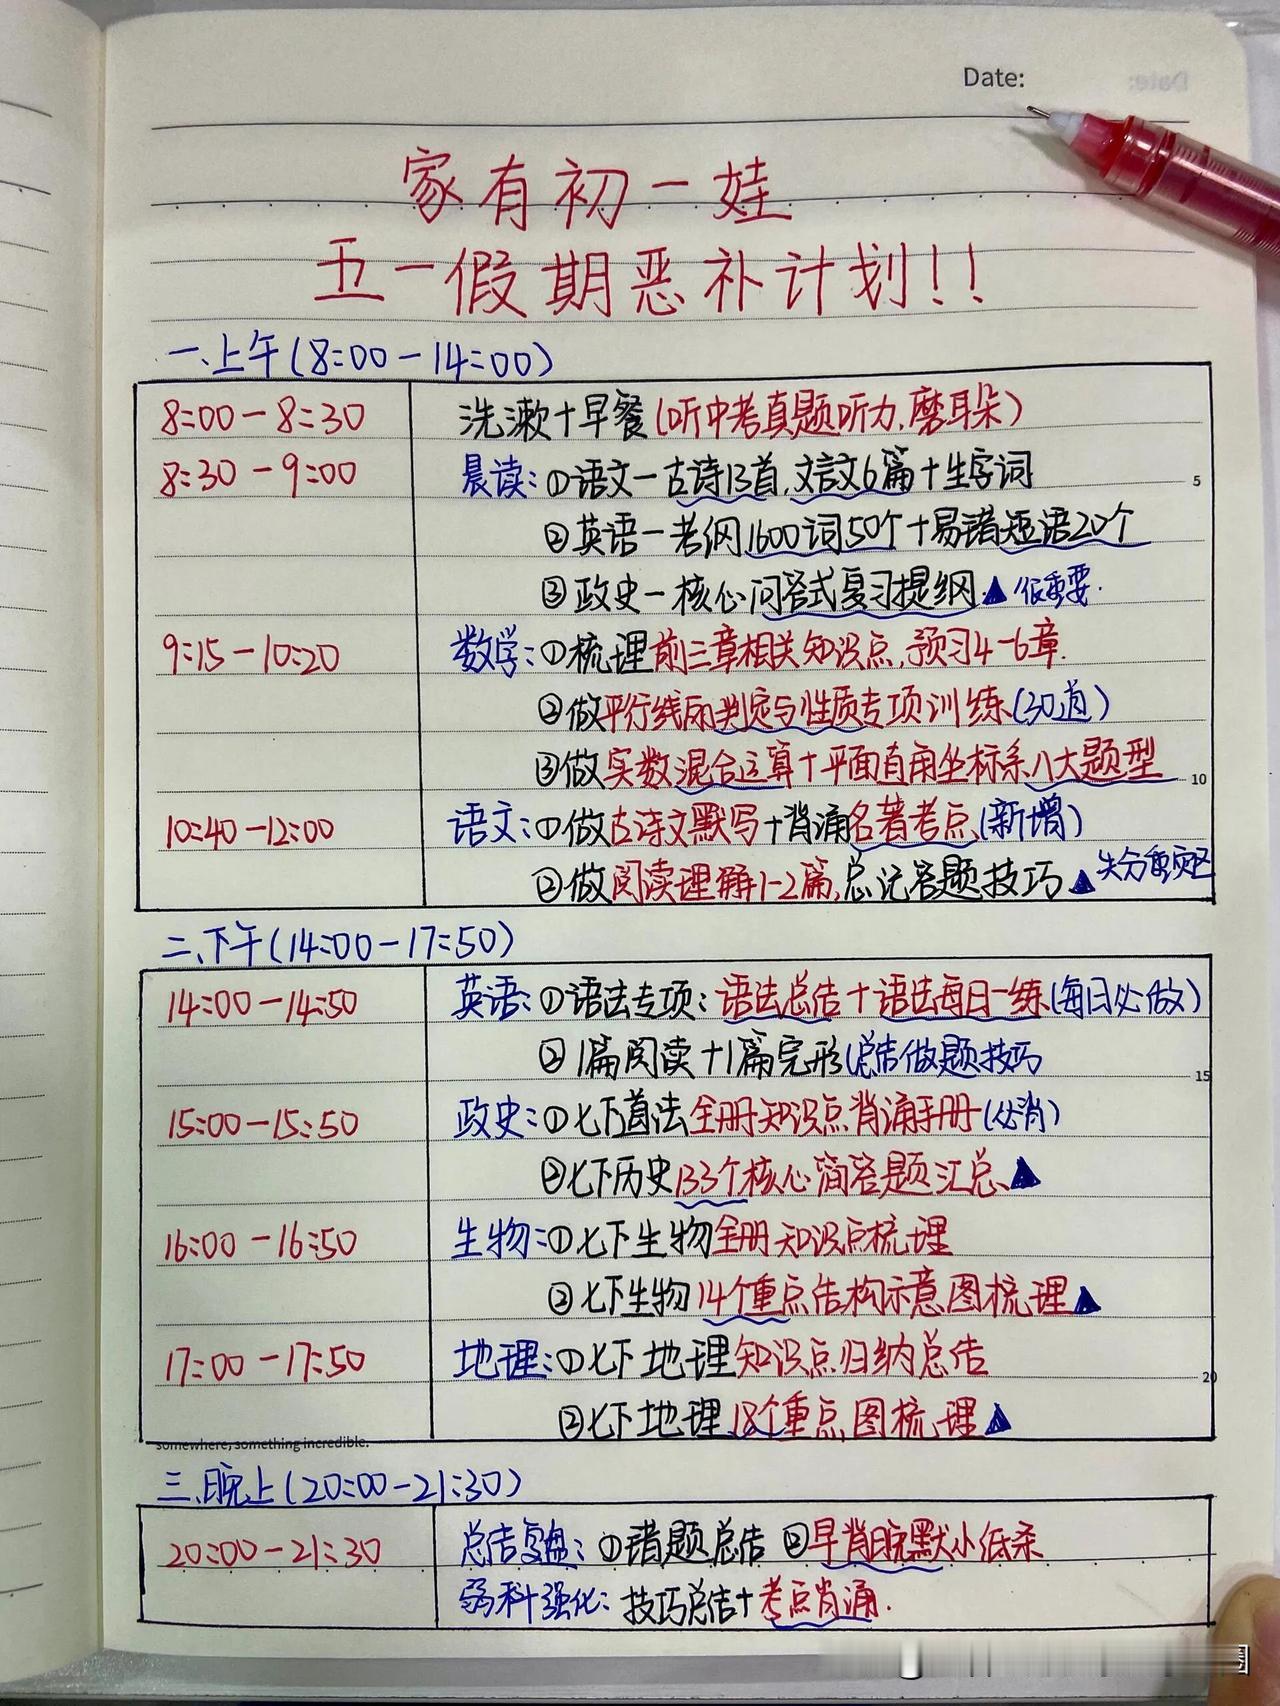 Date:
家有初一娃
五一假期恶补计划!!
一.上午(8:00-14:00)
8:00-8:30 洗漱+早餐(听中考真题听力,磨耳朵)
8:30-9:00 晨读:①语文-古诗13首,文言文6篇+生字词
5
②英语-考纲1600词50个+易错短语20个
③政史-核心问答式复习提纲▲很重要.
9:15-10:20 数学:①梳理前三章相关知识点,预习4-6章.
②做平行线的判定与性质专项训练(30道)
③做实数混合运算+平面直角坐标系八大题型
10
10:40-12:00 语文:①做古诗文默写+背诵名著考点(新增)
②做阅读理解1-2篇,总记答题技巧▲失分重灾区
二、下午(14:00-17:50)
14:00-14:50 英语:①语法专项:语法总结+语法每日一练(每日必做)
②1篇阅读+1篇完形(总结做题技巧
15
15:00-15:50 政史:①七下道法全册知识点背诵手册(必背)
②七下历史133个核心简答题汇总▲
16:00-16:50 生物:①七下生物全册知识点梳理
②七下生物14个重点结构示意图梳理▲
17:00-17:50 地理:①七下地理知识点归纳总结
20
②七下地理18个重点图梳理▲
somewhere, something incredible.
三.晚上(20:00-21:30)
20:00-21:30 总结复盘:①错题总结②早背晚默小低杀
弱科强化:技巧总结+考点背诵.